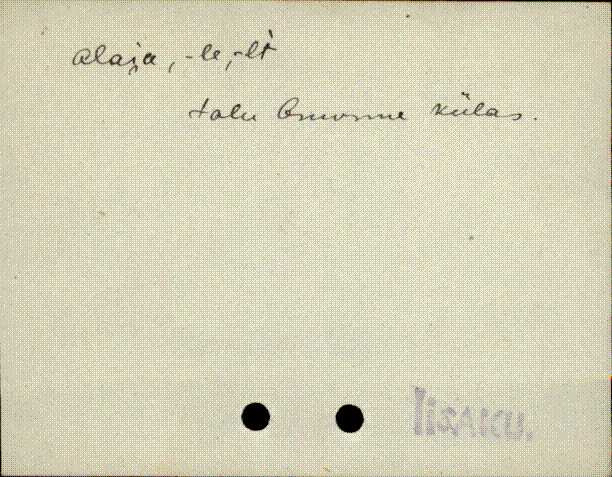 alaja, -le, -lt
talu Onurme külas.
IisAKU.